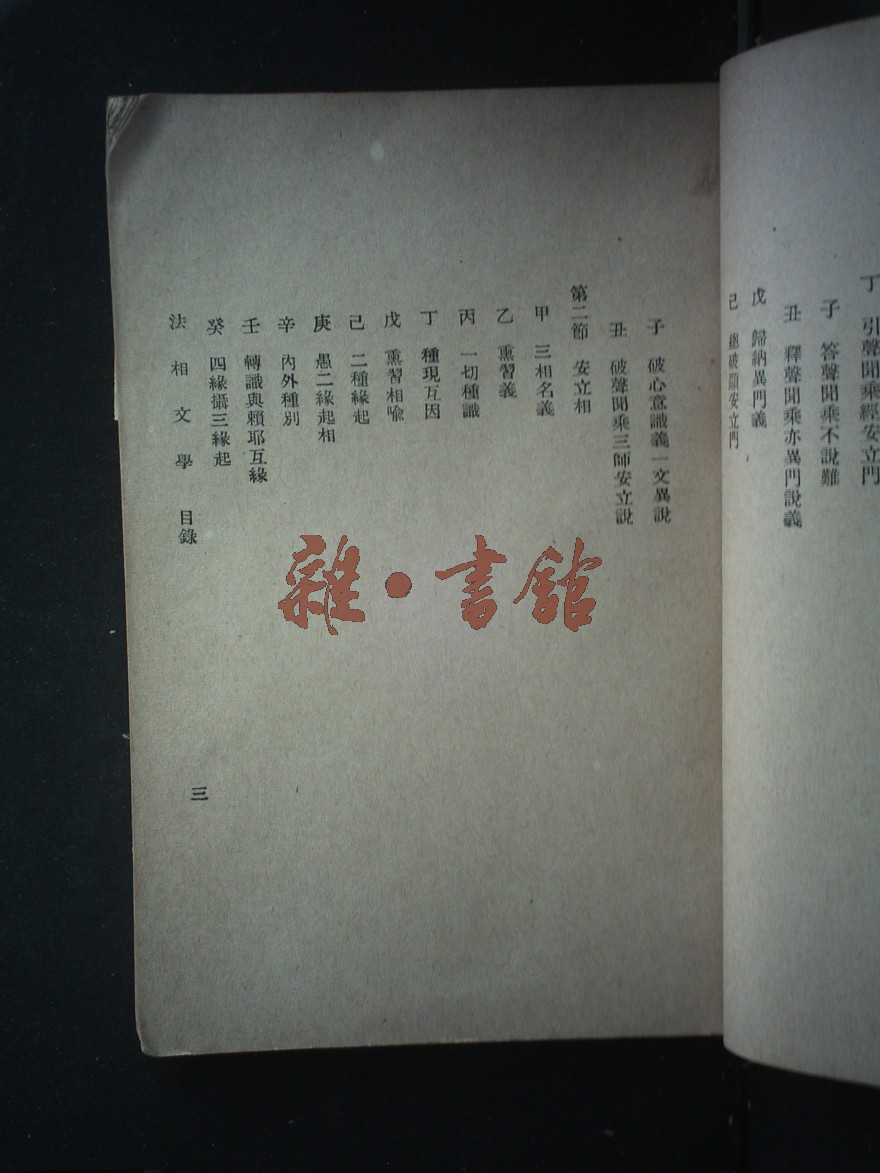 丁 引聲聞乘經安立門
子 答聲聞乘不說難
丑 釋聲聞乘亦異門說義
戊 歸納異門義
己 總破顯安立門
子 破心意識義一文異說
丑 破聲聞乘三師安立說
第二節 安立相
甲 三相名義
乙 熏習義
丙 一切種識
丁 種現互因
戊 熏習相喩
己 二種緣起
庚 愚二緣起相
辛 內外種別
壬 轉識與賴耶互緣
癸 四緣攝三緣起
法相文學 目錄
三
雜·書館